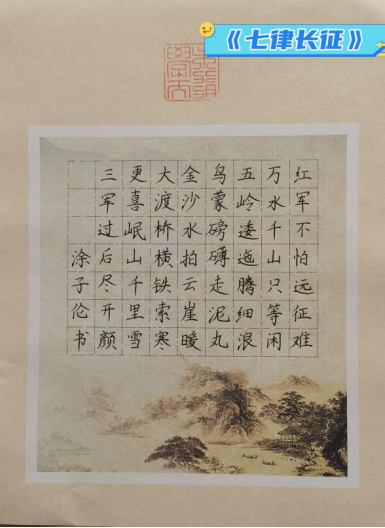 《七律长征》
红军不怕远征难
万水千山只等闲
五岭逶迤腾细浪
乌蒙磅礴走泥丸
金沙水拍云崖暖
大渡桥横铁索寒
更喜岷山千里雪
三军过后尽开颜
涂子伦书